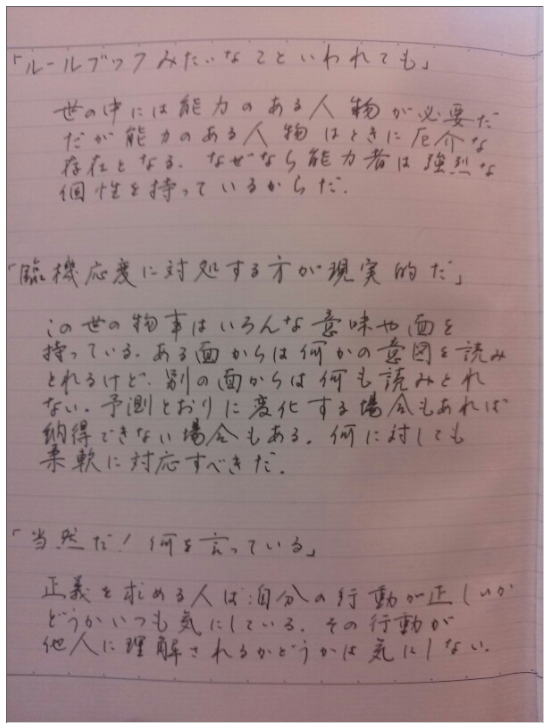 「ルールブックみたいなこといわれても」
世の中には能力のある人物が必要だ
だが能力のある人物はときに厄介な
存在となる。なぜなら能力者は強烈な
個性を持っているからだ.
「臨機応変に対処する方が現実的だ」
この世の物事はいろんな意味や面を
持っている。ある面からは何かの意図を読み
とれるけど、別の面からは何も読みとれ
ない。予測どおりに変化する場合もあれば
納得できない場合もある。何に対しても
柔軟に対応すべきだ。
「当然だ!何を言っている」
正義を求める人は自分の行動が正しいか
どうかいつも気にしている。その行動が
他人に理解されるかどうかは気にしない.